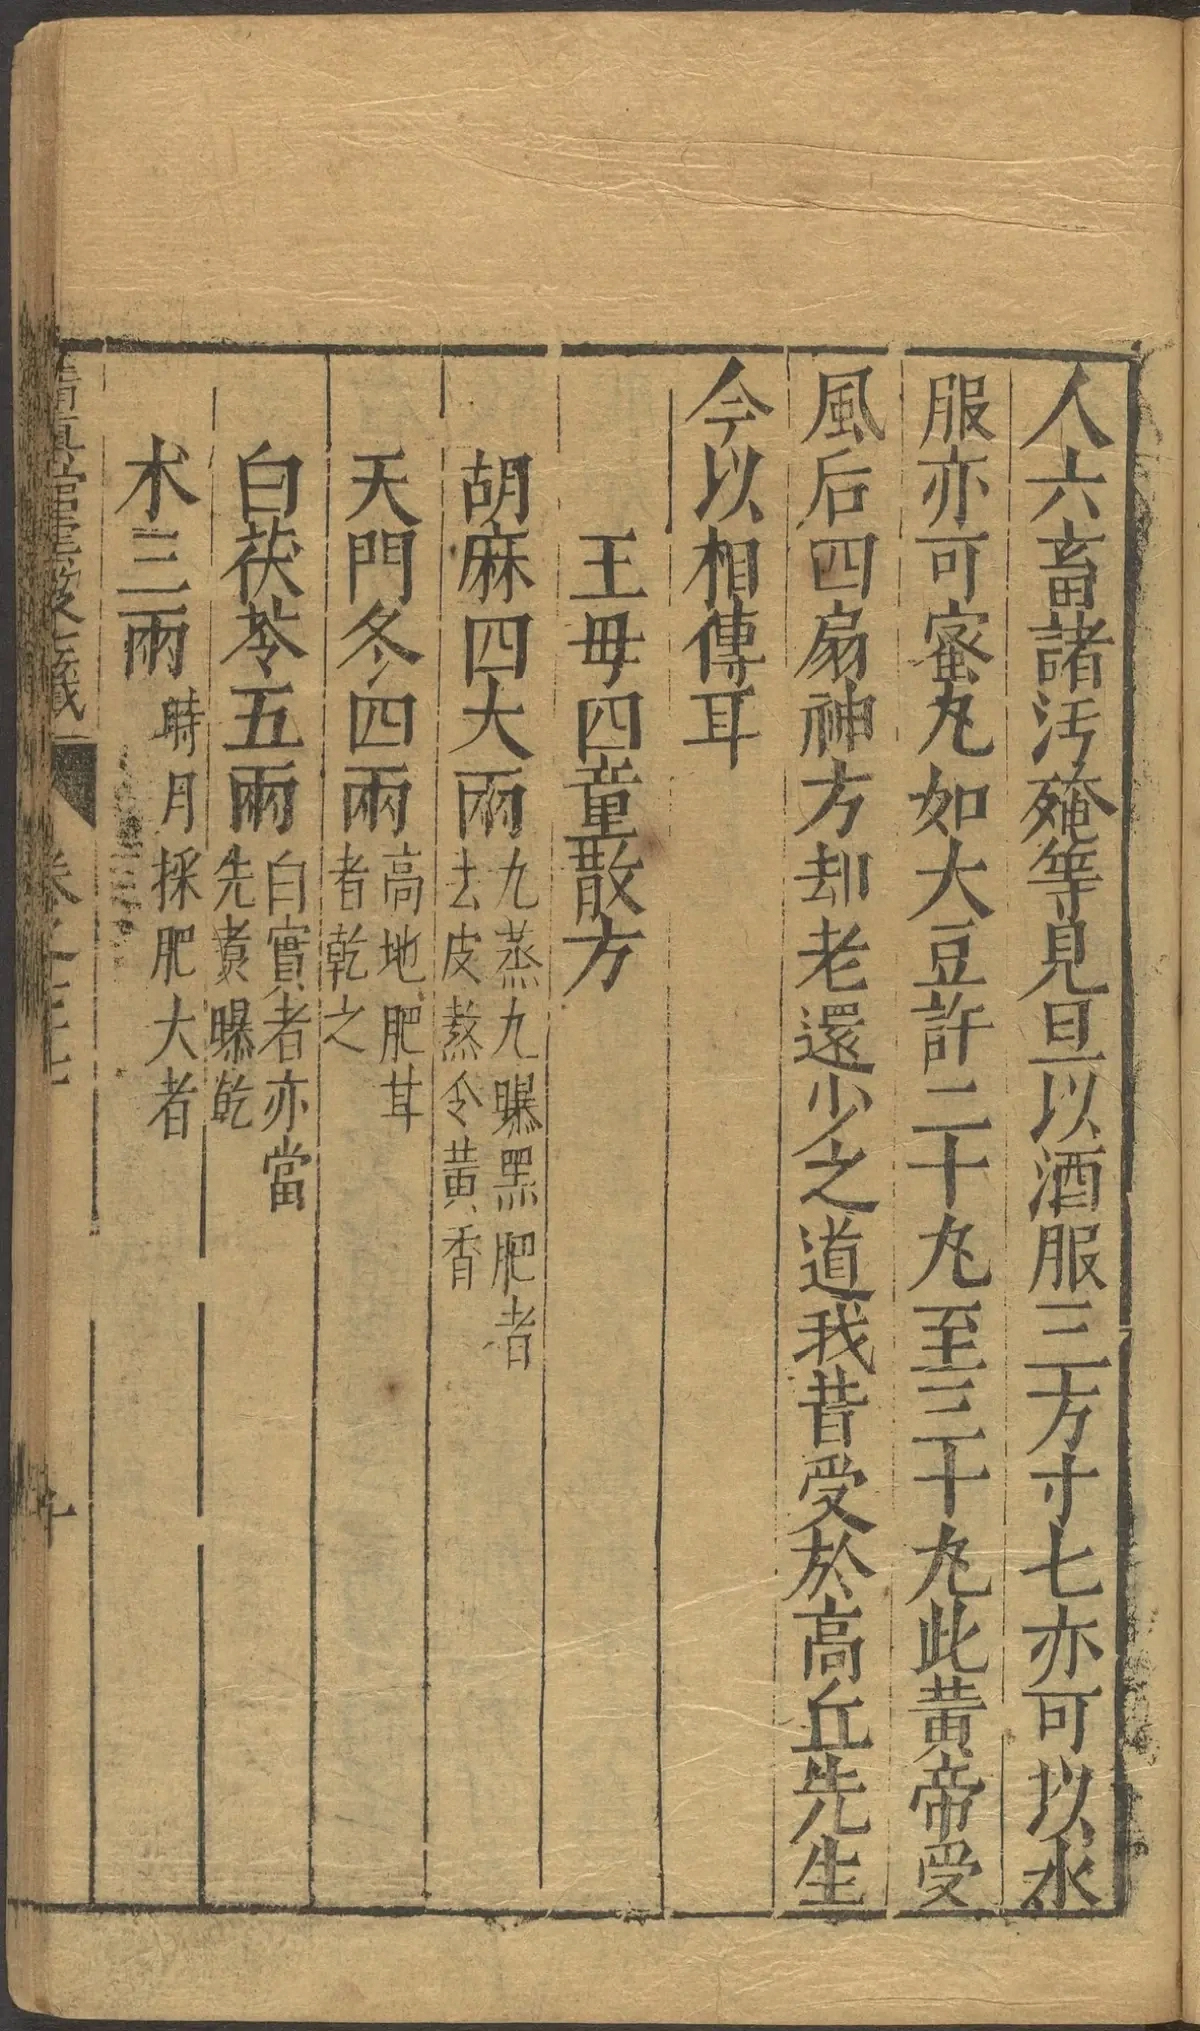 人六畜諸汚殗等見旦以酒服三方寸七亦可以水
服亦可蜜丸如大豆許二十丸至三十丸此黄帝受
風后四扇神方却老還少之道我昔受於高丘先生
今以相傳耳
王母四童散方
胡麻四大兩九蒸九曝黑肥者
去皮熬令黄香
天門冬四兩高地肥甘
者乾之
白茯苓五兩白實者亦當
先煑曝乾
术三兩時月採肥大者
清真館雲笈七籤
卷之七十七